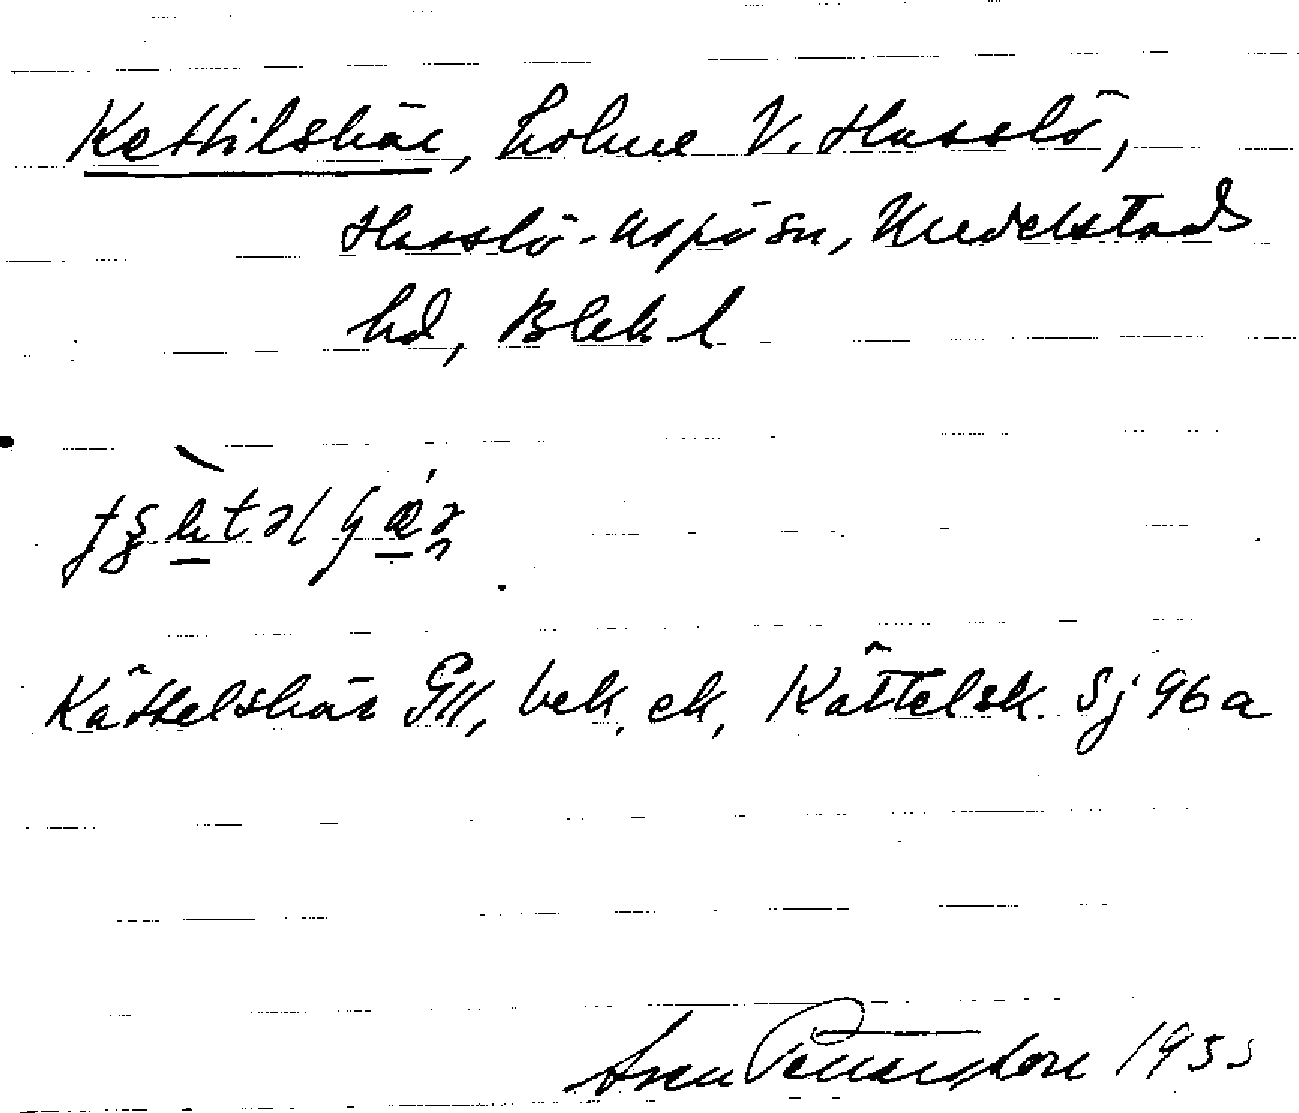 Kettilskär, holme V. Hasslö,
Hasslö-Aspö sn, Medelstads
hd, Blek l
Kättelskär GK, bek, ek, Kättelsk. Sj 96 a
Sven Pettersson 1955